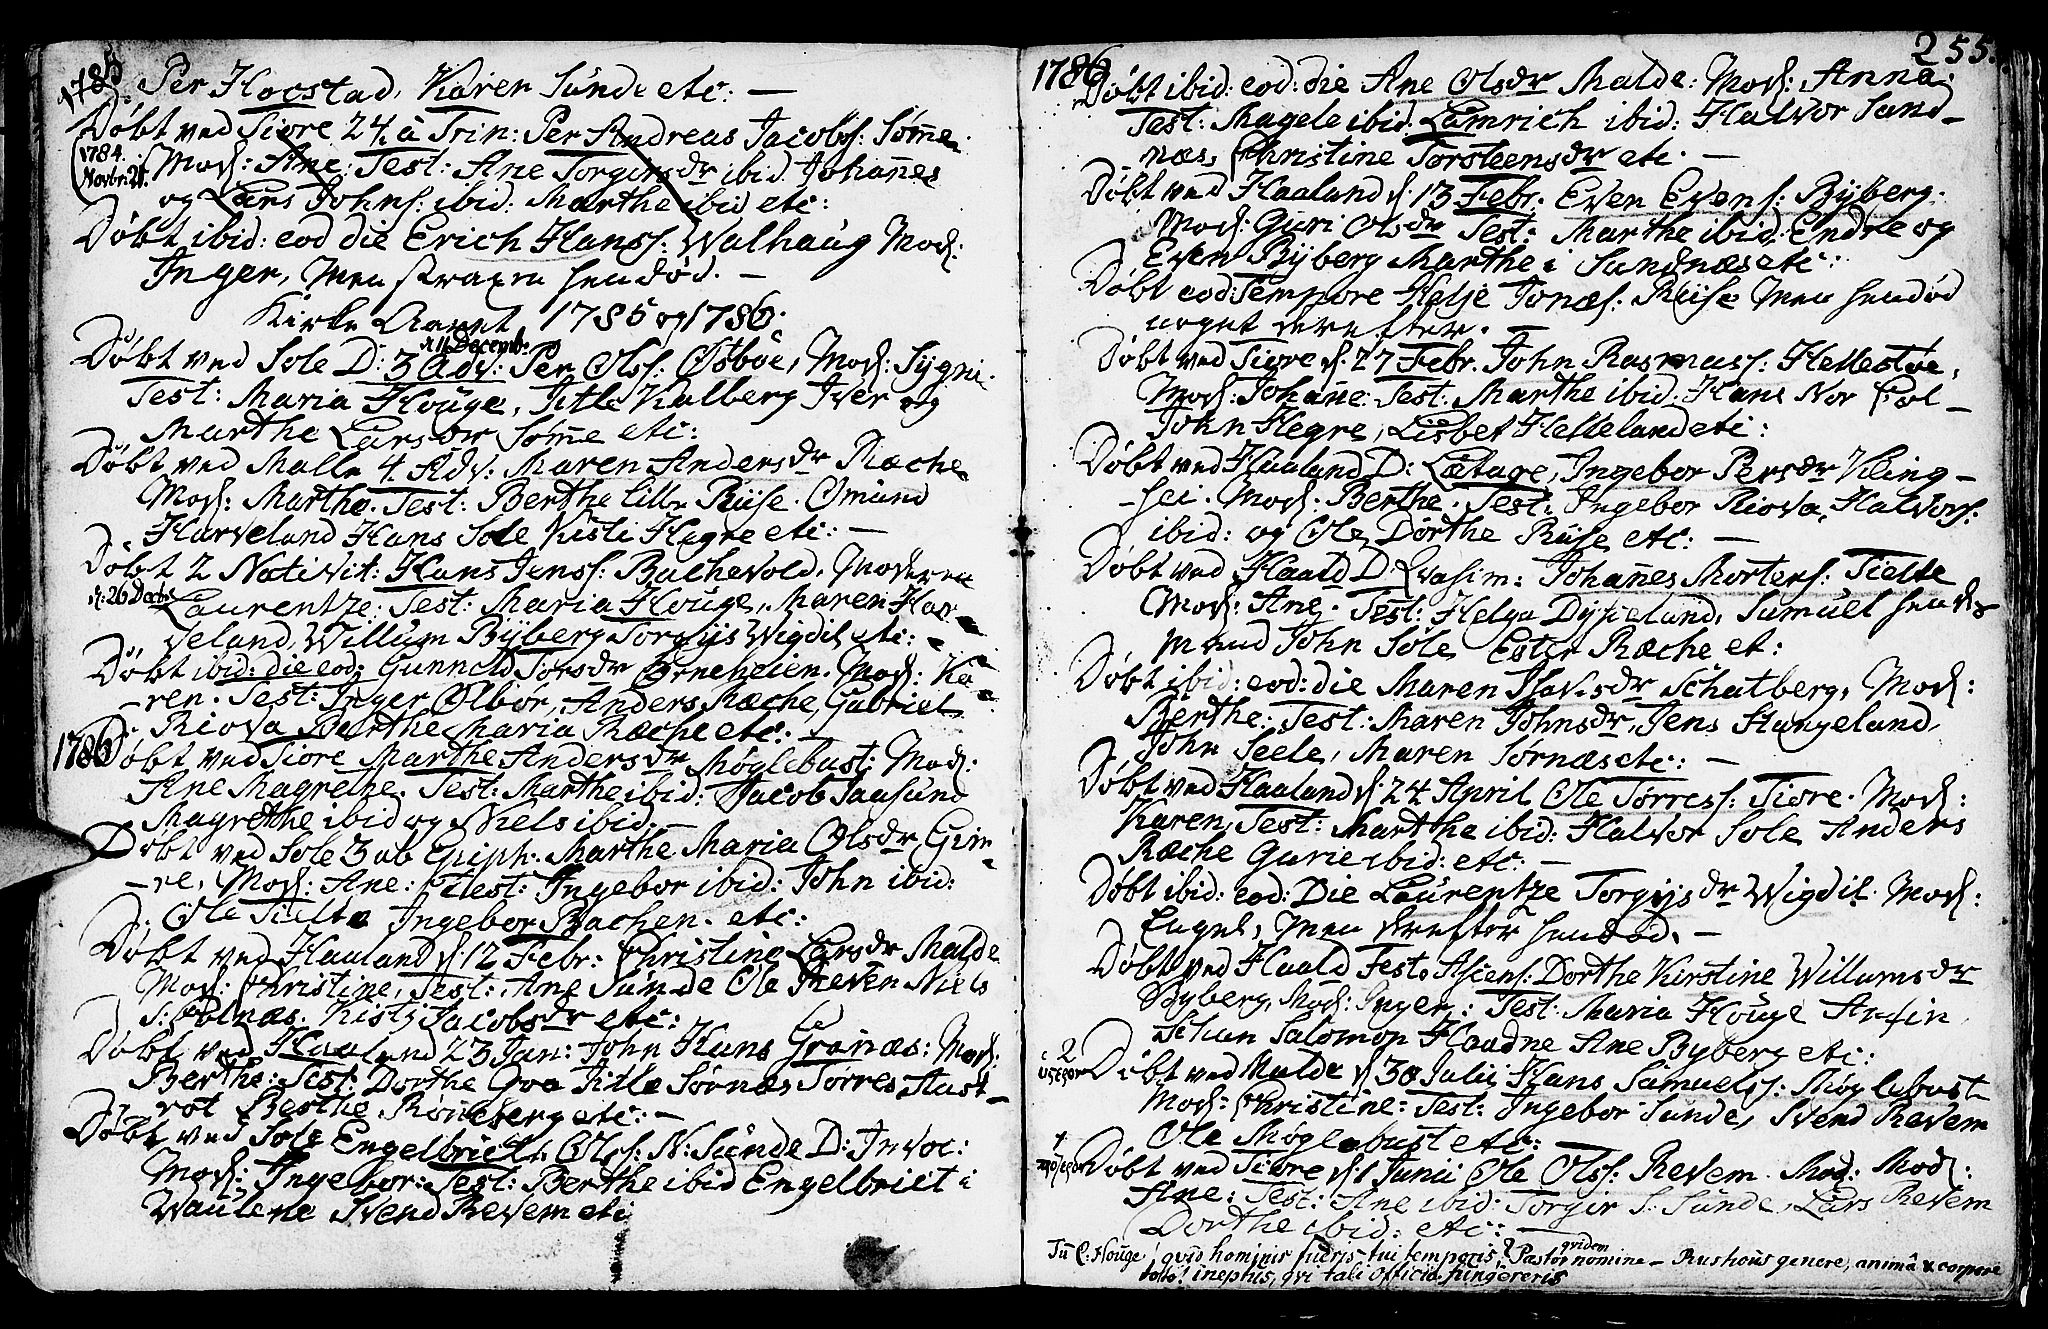 1785
Per Hogstad, Karen Sunde etc: —
Døbt ved Tiøre 24 à Trin: Per Andreas Jacobs: Sømme
1784. Novbr: 21. Mod: Ane: Test: Ane Torgersdr ibid Johannes
og Lars Johns: ibid: Marthe ibid etc:
Døbt ibid: eod die Erich Hanss: Walhaug Mod:
Inger, Men straxen hendød. —
Kirke Aaret 1785 og 1786.
d: 11 Decemb:
Døbt ved Sole D: 3 Adv: Per Olss: Østbøe, Mod: Sygni
Test: Maria Houge, Jitle Kalberg Iver og
Marthe Larsdr Sømme etc:
Døbt ved Malle 4 Adv: Maren Andersdr Ræche
Mod: Marthe. Test: Berthe lille Riise. Osmund
Harveland Hans Sole Kisti Hegre etc: —
Døbt 2 Nativit: Hans Jenss: Bachevold. Moderen
d: 26 Decbr Laurentze: Test: Maria Houge, Maren Har-
veland, Willum Byberg Torgiis Wigdil etc:
Døbt ibid: die eod: Gunneld Torsdr Ørneheien. Mod: Ka-
-ren. Test: Inger Ølbør, Anders Ræche, Gabriel
Riova Berthe Maria Ræche etc: —
1786 Døbt ved Tiøre Marthe Andersdr Møglebust: Mod:
Ane Magrethe. Test: Marthe ibid: Jacob Jaasund
Magrethe ibid og Niels ibid —
Døbt ved Sole 3 ab Epiph: Marthe Maria Olsdr Gim-
-re, Mod: Ane: Test: Ingebor ibid: John ibid:
Ole Tielte Ingebor Bachen. etc:
Døbt ved Haaland d: 12 Febr: Christine Larsdr Malde
Mod: Christine, Test: Ane Sunde Ole Reven Niels
S: Kolnæs. Kisti Jacobsdr etc:
Døbt ved Haaland 23 Jan: John Hans Granæs: Mod:
Berthe: Test: Dorthe Goa Jitle Sørnæs Tørres Aust-
rot Berthe Røneberg etc: —
Døbt ved Sole Engelbriet Olss: N: Sunde D: Invoc:
Mod: Ingebor: Test: Berthe ibid Engelbriet i
Waulene Svend Revem etc
255.
1786
Døbt ibid: eod: die Ane Olsdr Malde: Mod: Anna.
Test: Magele ibid: Lamrich ibid: Halvor Sand-
næs, Christine Torsteensdr etc. —
Døbt ved Haaland d: 13 Febr. Even Evens: Byberg.
Mod: Guri Olsdr Test: Marthe ibid: Endre og
Even Byberg Marthe i Sundnæs etc:
Døbt eod: Tempore Helje Jonæs: Riise Men hendød
noget derefter. —
Døbt ved Tiøre d: 27 Febr. John Rasmuss: Hellestøe,
Mod: Johanne: Test: Marthe ibid. Hans Nor Col-
John Hegre, Lisbet Helleland etc:
Døbt ved Haaland D: Lætare, Ingebor Persdr Kling-
-hei. Mod: Berthe. Test: Ingebor Riova, Halvors:
ibid: og Ole Dorthe Riise etc: —
Døbt ved Haald D: Qvasim: Johannes Mortens: Tielte
Mod: Ane. Test: Helga Dysieland, Samuel hendes
Mand John Sole Ester Ræche et:
Døbt ibid: eod: die Maren Isaksdr Schatberg, Mod:
Berthe: Test: Maren Johnsdr, Jens Stangeland,
John Seele, Maren Sørnæs etc: —
Døbt ved Haaland d: 24 April Ole Tørress: Tiøre. Mod:
Karen, Test: Marthe ibid: Halvor Sole Anders
Ræche Gurie ibid: etc: —
Døbt ibid: eod: Die Laurentze Torgiisdr Wigdil. Mod:
Engel, Men derefter hendød. —
Døbt ved Haald Festo Ascens: Dorthe Kirstine Willumsdr
Byberg, Mod: Inger: Test: Maria Houge
Salomon Haadne Ane Byberg etc:
2
Døbt ved Malde d 30 Julij Hans Samuelss: Møglebust
Mod: Christine: Test: Ingebor Sunde, Svend Revem
Ole Møglebust etc:
Døbt ved Tiøre d: 1 Junii Ole Olss: Revem. Mod: Mod:
Ane: Test: Ane ibid: Torgir S: Sunde, Lars Revem
Dorthe ibid: etc: —
Tu C: Houge! qvid hominis fueris tui temporis? Pastor qvidem nomine — Rusticus genere, animâ & corpore
toto! ineptus, qvi tali officio fungereris